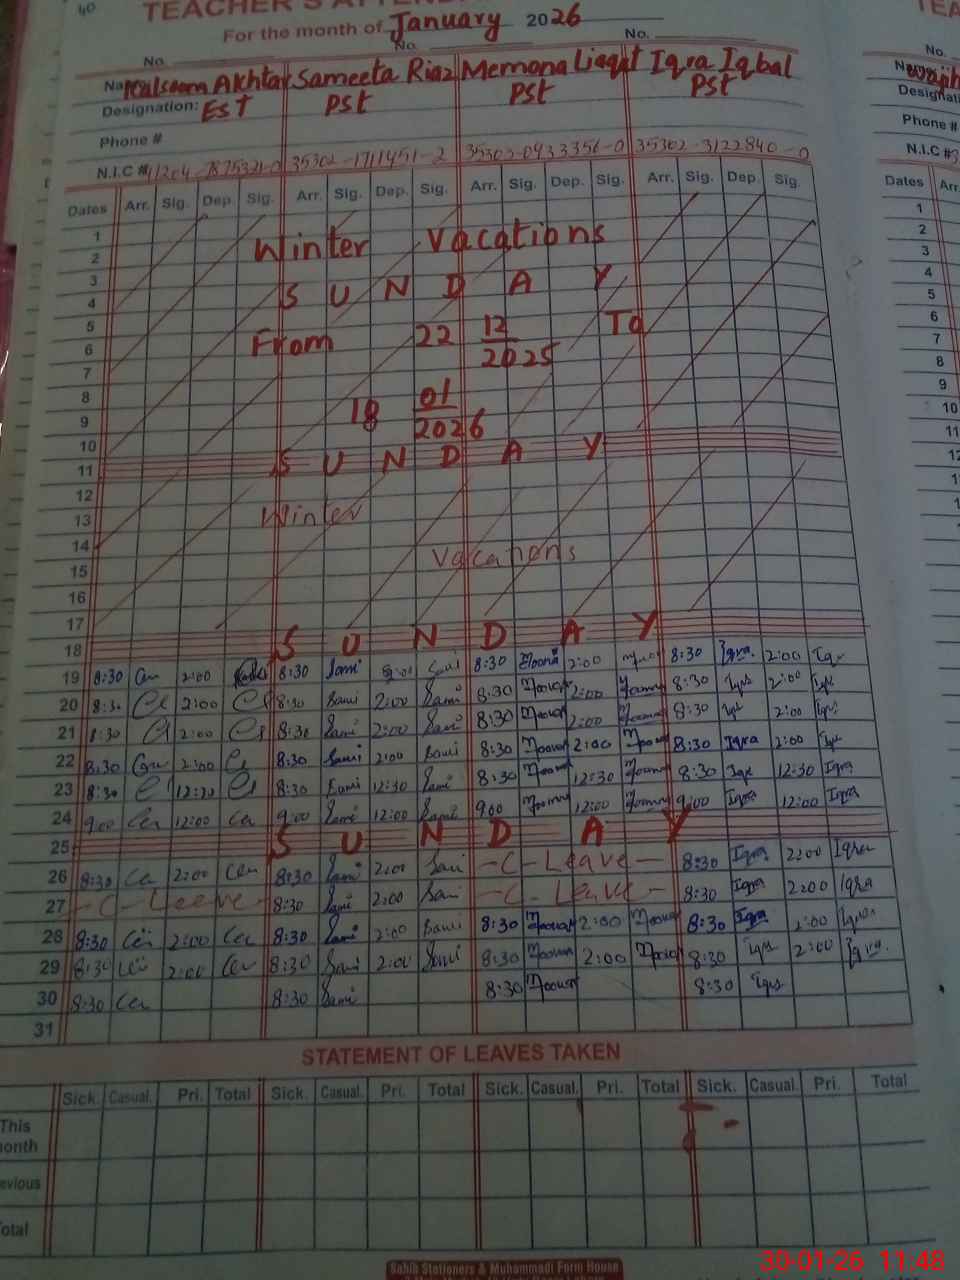 40
TEACHER'S
For the month of January 2026
No. No. No.
Name Kalsoom Akhtar Sameeta Riaz Memona Liaqat Iqra Iqbal
Designation: EST PST PST PST
Phone #
N.I.C # 35302-1711451-2 35302-0933356-0 35302-3122840-0
Dates Arr. Sig. Dep. Sig. Arr. Sig. Dep. Sig. Arr. Sig. Dep. Sig. Arr. Sig. Dep. Sig.
1 Winter Vacations
2
3
4 SUNDAY
5
6 From 22 12 2025 To
7
8
9 18 01 2026
10
11 SUNDAY
12
13 Winter
14 Vacations
15
16
17
18 SUNDAY
19 8:30 2:00 8:30 Sami 2:00 Sami 8:30 2:00 8:30 Iqra 2:00 Iq
20 8:30 2:00 8:30 Sami 2:00 Sami 8:30 2:00 8:30 Iqra 2:00 Iqr
21 8:30 2:00 8:30 Sami 2:00 Sami 8:30 2:00 8:30 Iqr 2:00 Iqr
22 8:30 2:00 8:30 Sami 2:00 Sami 8:30 2:00 8:30 Iqra 2:00 Iqr
23 8:30 12:30 8:30 Sami 12:30 Sami 8:30 12:30 8:30 Iqr 12:30 Iqra
24 9:00 12:00 9:00 Sami 12:00 Sami 9:00 12:00 9:00 Iqra 12:00 Iqra
25 SUNDAY
26 8:30 2:00 8:30 Sami 2:00 Sami -C-Leave- 8:30 Iqra 2:00 Iqra
27 -C-Leave- 8:30 Sami 2:00 Sami -C-Leave- 8:30 Iqra 2:00 Iqra
28 8:30 2:00 8:30 Sami 2:00 Sami 8:30 2:00 8:30 Iqra 2:00 Iqra
29 8:30 2:00 8:30 Sami 2:00 Sami 8:30 2:00 8:30 Iqr 2:00 Iqra
30 8:30 8:30 Sami 8:30 8:30 Iqra
31
STATEMENT OF LEAVES TAKEN
Sick. Casual. Pri. Total Sick. Casual. Pri. Total Sick. Casual. Pri. Total Sick. Casual. Pri. Total
This
onth
evious
otal
Sahib Stationers & Muhammadi Form House
30-01-26 11:48
TEA
No.
Name
Designati
Phone #
N.I.C #
Dates Arr.
1
2
3
4
5
6
7
8
9
10
11
12